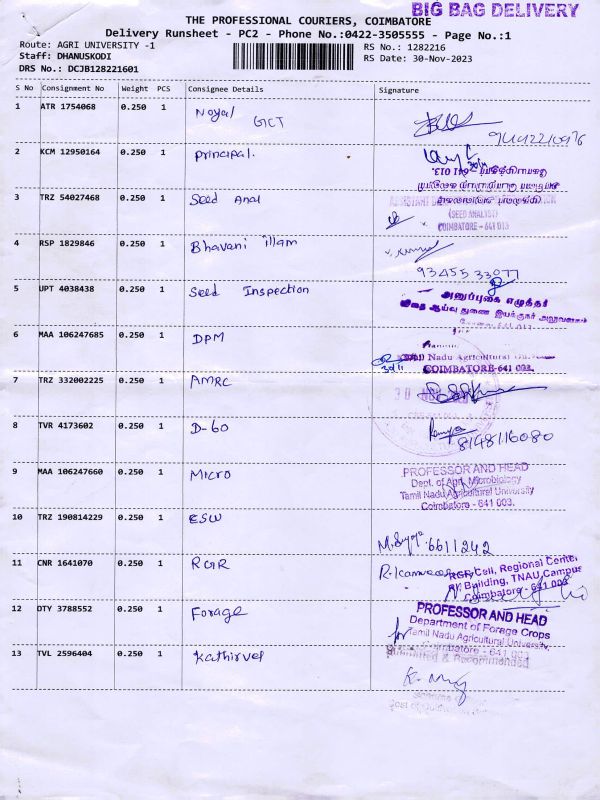 BIG BAG DELIVERY
THE PROFESSIONAL COURIERS, COIMBATORE
Delivery Runsheet - PC2 - Phone No.:0422-3505555 - Page No.:1
Route: AGRI UNIVERSITY -1
RS No.: 1282216
Staff: DHANUSKODI
RS Date: 30-Nov-2023
DRS No.: DCJB128221601
S No Consignment No Weight PCS Consignee Details Signature
1 ATR 1754068 0.250 1 Noyal GCT
2 KCM 12950164 0.250 1 principal. 30/11
641 013.
3 TRZ 54027468 0.250 1 Seed Anal
(SEED ANALYST)
COIMBATORE - 641 013
4 RSP 1829846 0.250 1 Bhavani illam
93455 33077
5 UPT 4038438 0.250 1 Seed Inspection
அனுப்புகை எழுத்தர்
விதை ஆய்வு துணை இயக்குநர் அலுவலகம்
6 MAA 106247685 0.250 1 DPM
30/11 Nadu Agricultural
COIMBATORE-641 003.
7 TRZ 332002225 0.250 1 AMRC
30 NOV
8 TVR 4173602 0.250 1 D-60
Ramya
8148116080
9 MAA 106247660 0.250 1 Micro
PROFESSOR AND HEAD
Dept. of Agrl. Microbiology
Tamil Nadu Agricultural University
Coimbatore - 641 003.
10 TRZ 190814229 0.250 1 ESW
6611242
11 CNR 1641070 0.250 1 RGR
RGR Cell, Regional Center
Building, TNAU Campus
Coimbatore - 641 003
12 DTY 3788552 0.250 1 Forage
PROFESSOR AND HEAD
Department of Forage Crops
for Tamil Nadu Agricultural University,
Coimbatore - 641 003
Submitted & Recommended
13 TVL 2596404 0.250 1 Kathirvel